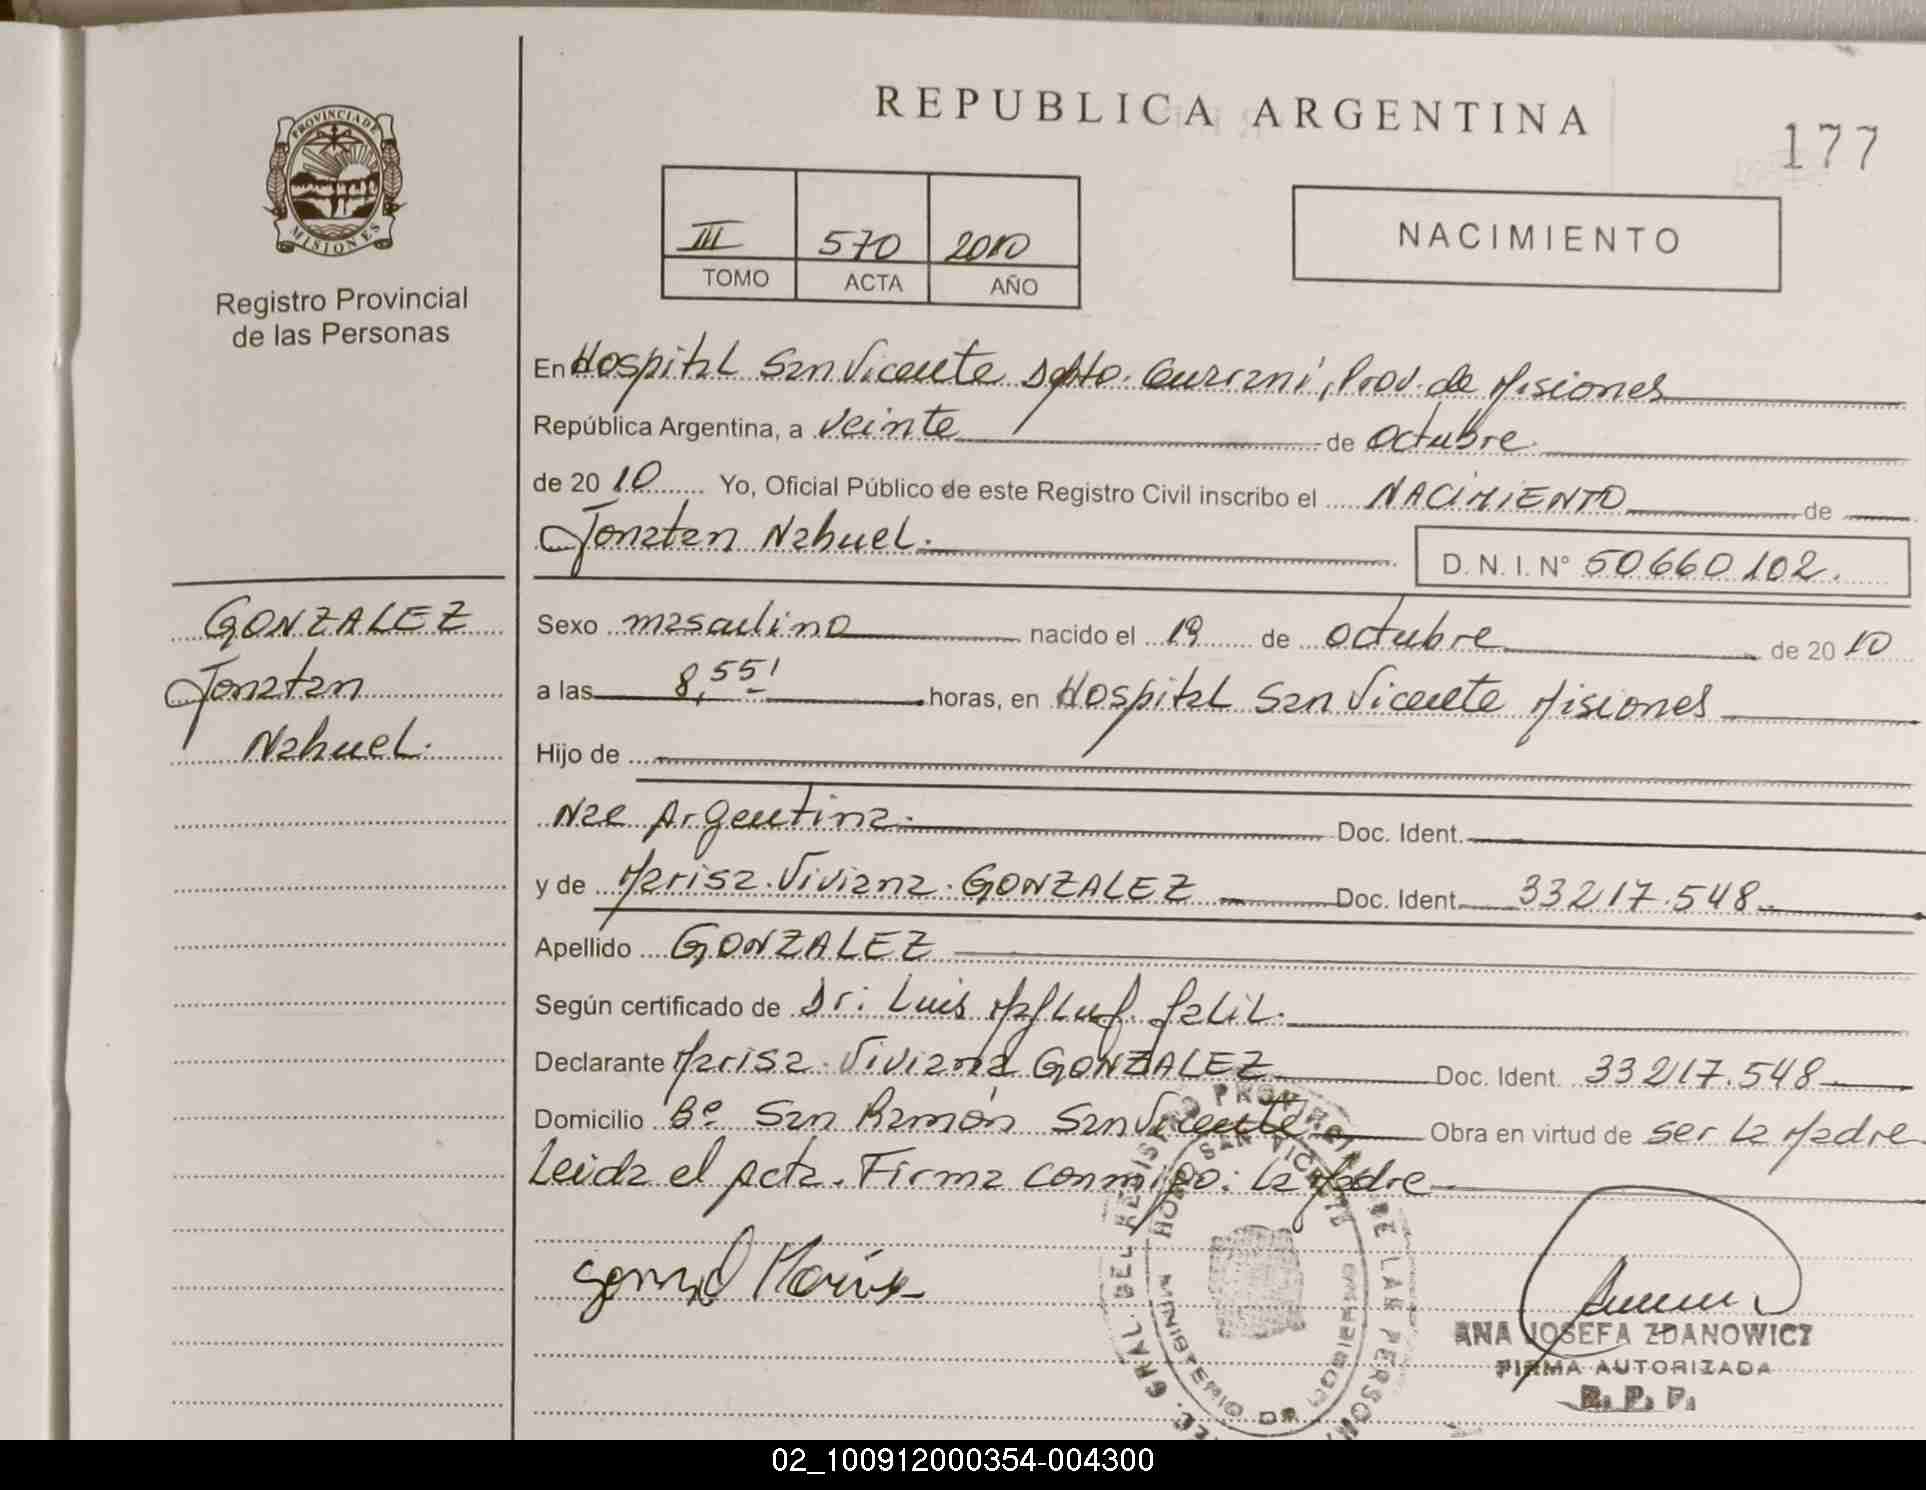 REPUBLICA ARGENTINA
177
PROVINCIA DE
MISIONES
Registro Provincial
de las Personas
III 570 2010
TOMO ACTA AÑO
NACIMIENTO
En Hospital San Vicente Dpto. Guarani, Prov. de Misiones
República Argentina, a veinte de octubre
de 2010 Yo, Oficial Público de este Registro Civil inscribo el NACIMIENTO de
Jonatan Nahuel.
D. N. I. N° 50660102.
GONZALEZ
Jonatan
Nahuel.
Sexo masculino nacido el 19 de octubre de 2010
a las 8,55' horas, en Hospital San Vicente Misiones
Hijo de
Nac Argentina. Doc. Ident.
y de Marisa Viviana GONZALEZ Doc. Ident. 33217.548
Apellido GONZALEZ
Según certificado de Dr: Luis Jalil.
Declarante Marisa Viviana GONZALEZ Doc. Ident. 33217.548
Domicilio Bº San Ramón San Vicente Obra en virtud de ser la Madre
Leida el Acta. Firma conmigo: la Madre
ANA JOSEFA ZDANOWICZ
FIRMA AUTORIZADA
R. P. P.
02_100912000354-004300